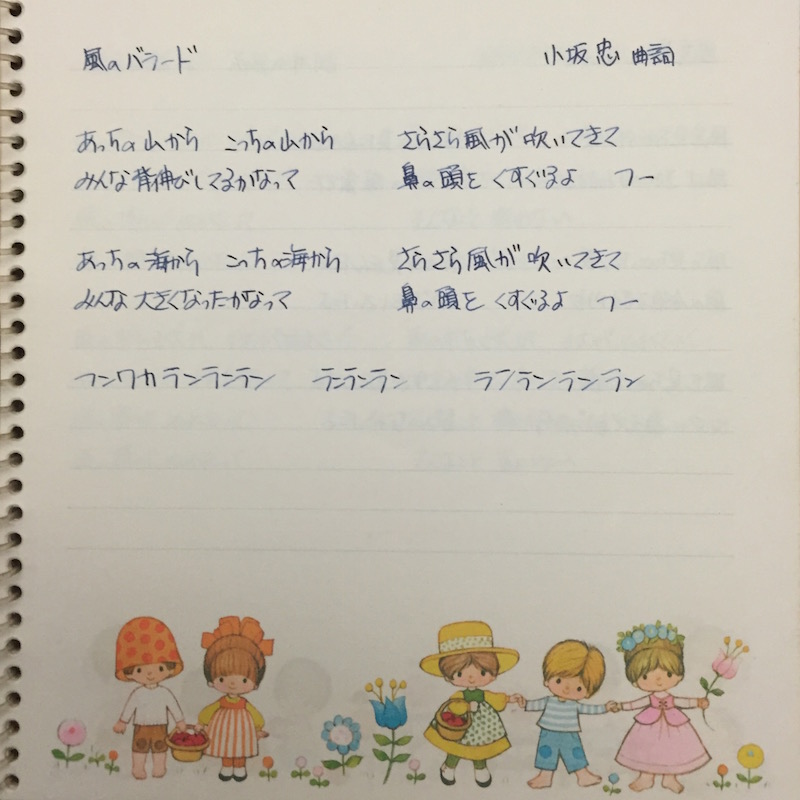 風のバラード 小坂忠 曲詞
あっちの山から こっちの山から さらさら風が吹いてきて
みんな背伸びしてるかなって 鼻の頭をくすぐるよ フー
あっちの海から こっちの海から さらさら風が吹いてきて
みんな大きくなったかなって 鼻の頭をくすぐるよ フー
フンワカランランラン ランランラン ランランランラン